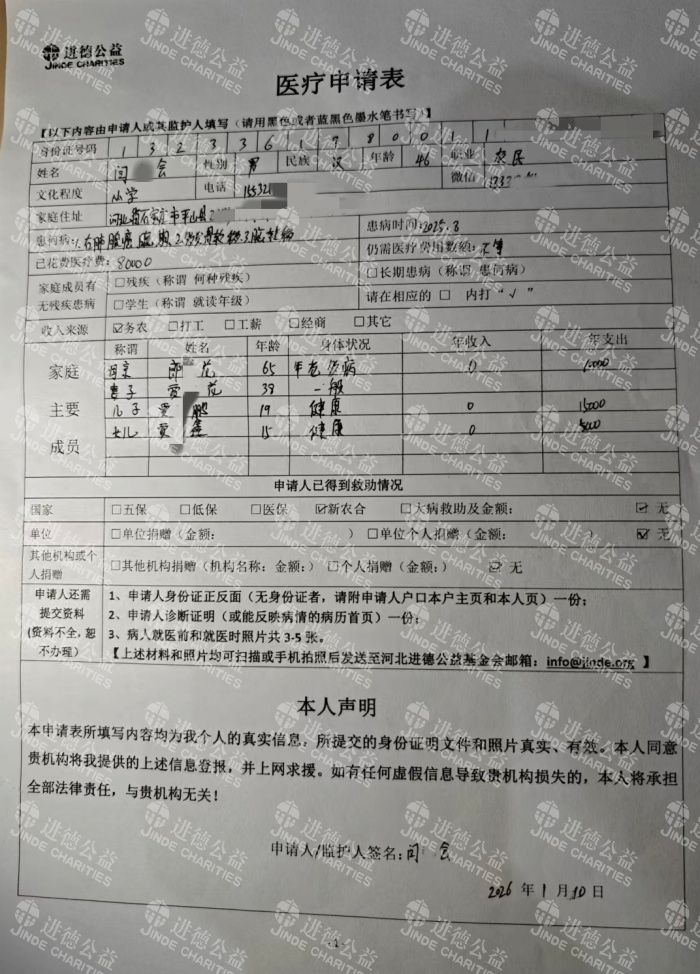 进德公益
JINDE CHARITIES
医疗申请表
【以下内容由申请人或其监护人填写(请用黑色或者蓝黑色墨水笔书写)】
身份证号码 1 3 2 3 3 6 1 9 8 0 0 1 1
姓名 闫 会 性别 男 民族 汉 年龄 46 职业 农民
文化程度 小学 电话 155321 微信
家庭住址 河北省石家庄市平山县
患何病: 患病时间:2025.8
已花费医疗费:80000 仍需医疗费用数额:不等
家庭成员有无残疾患病 □残疾(称谓 何种残疾) □长期患病(称谓 患何病)
□学生(称谓 就读年级) 请在相应的 □ 内打“√”
收入来源 ☑务农 □打工 □工薪 □经商 □其它
家庭主要成员 称谓 姓名 年龄 身体状况 年收入 年支出
母亲 花 65 年老多病 0
妻子 花 38 一般
儿子 鹏 19 健康 0 15000
女儿 鑫 15 健康 0 5000
申请人已得到救助情况
国家 □五保 □低保 □医保 ☑新农合 □大病救助及金额: ☑ 无
单位 □单位捐赠(金额: ) □单位个人捐赠(金额: ) ☑ 无
其他机构或个人捐赠 □其他机构捐赠(机构名称: 金额:) □个人捐赠(金额:) ☑ 无
申请人还需提交资料(资料不全,恕不办理)
1、申请人身份证正反面(无身份证者,请附申请人户口本户主页和本人页)一份;
2、申请人诊断证明(或能反映病情的病历首页)一份;
3、病人就医前和就医时照片共 3-5 张。
【上述材料和照片均可扫描或手机拍照后发送至河北进德公益基金会邮箱:info@jinde.org 】
本人声明
本申请表所填写内容均为我个人的真实信息,所提交的身份证明文件和照片真实、有效。本人同意
贵机构将我提供的上述信息登报,并上网求援。如有任何虚假信息导致贵机构损失的,本人将承担
全部法律责任,与贵机构无关!
申请人/监护人签名:闫 会
2026 年 1 月 10 日
1